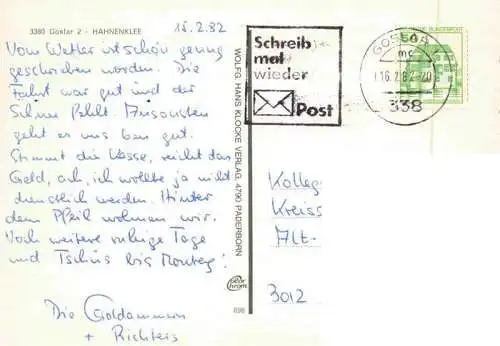 3380 Goslar 2 - HAHNENKLEE
15.2.82
Vom Wetter ist schon genug
geschrieben worden. Die
Fahrt war gut und der
Schnee Ansonsten
geht es uns gut.
Stimmt die Kasse, reicht das
Geld, ach, ich wollte ja nicht
dienstlich werden. Hinter
dem Pfeil wohnen wir.
Noch weitere ruhige Tage
und Tschüs bis Montag!
Die Goldammern
+ Richters
WOLFG. HANS KLOCKE VERLAG, 4790 PADERBORN
color
chrom
898
Schreib
mal
wieder
Post
GOSLAR
mc
16.2.82-20
338
DEUTSCHE BUNDESPOST
Kolleg
Kreiss
Alt.
3012